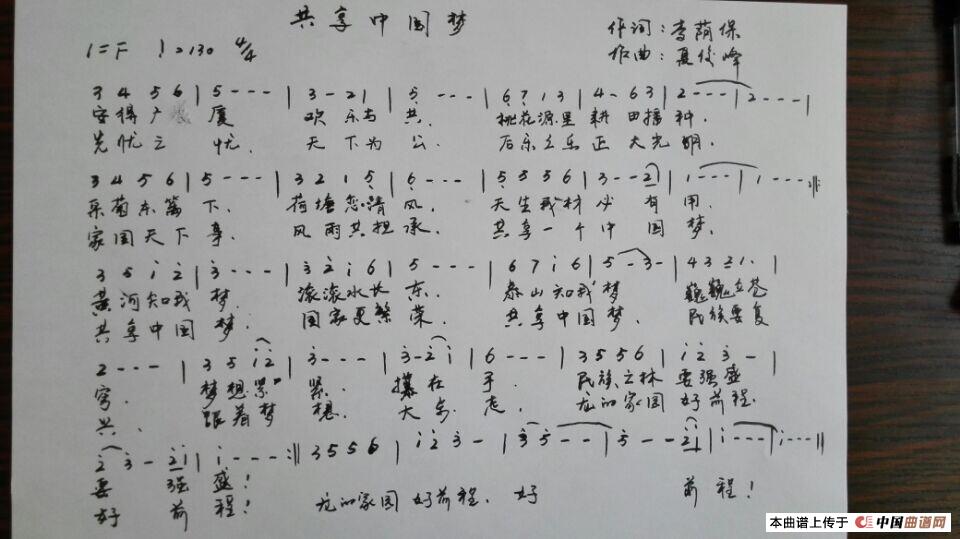 共享中国梦
作词:李荫保
1=F ♩=130 4/4
作曲:夏俊峰
3 4 5 6 | 5 - - - | 3 - 2 1 | 5 - - - | 6 7 1 3 | 4 - 6 3 | 2 - - - | 2 - - - |
安得广 厦 欢乐与共. 桃花源里耕田播种.
先忧之忧. 天下为公. 后乐之乐正大光明.
3 4 5 6 | 5 - - - | 3 2 1 5 | 6 - - - | 5 5 5 6 | 3 - - 2 | 1 - - - | 1 - - - :||
采菊东篱下. 荷塘您清风. 天生我材必有用.
家国天下事. 风雨共担承. 共享一个中国梦.
3 5 i 2 | 3 - - - | 3 2 i 6 | 5 - - - | 6 7 i 6 | 5 - 3 - | 4 3 2 1 · |
黄河知我梦. 滚滚水长东. 泰山知我梦 巍巍立苍
共享中国梦. 国家更繁荣. 共享中国梦. 民族要复
2 - - - | 3 5 i 2 | 3 - - - | 3 - 2 i | 6 - - - | 3 5 5 6 | i 2 3 - |
穹. 梦想紧 紧. 攥在手. 民族之林要强盛
兴. 跟着梦想. 大步走. 龙的家园好前程.
2 3 - 2 i | i - - - :|| 3 5 5 6 | i 2 3 - | 3 5 - - | 5 - - 2 i | i - - - | i - - - ||
要强盛!
好前程! 龙的家园好前程. 好前程!
本曲谱上传于 中国曲谱网